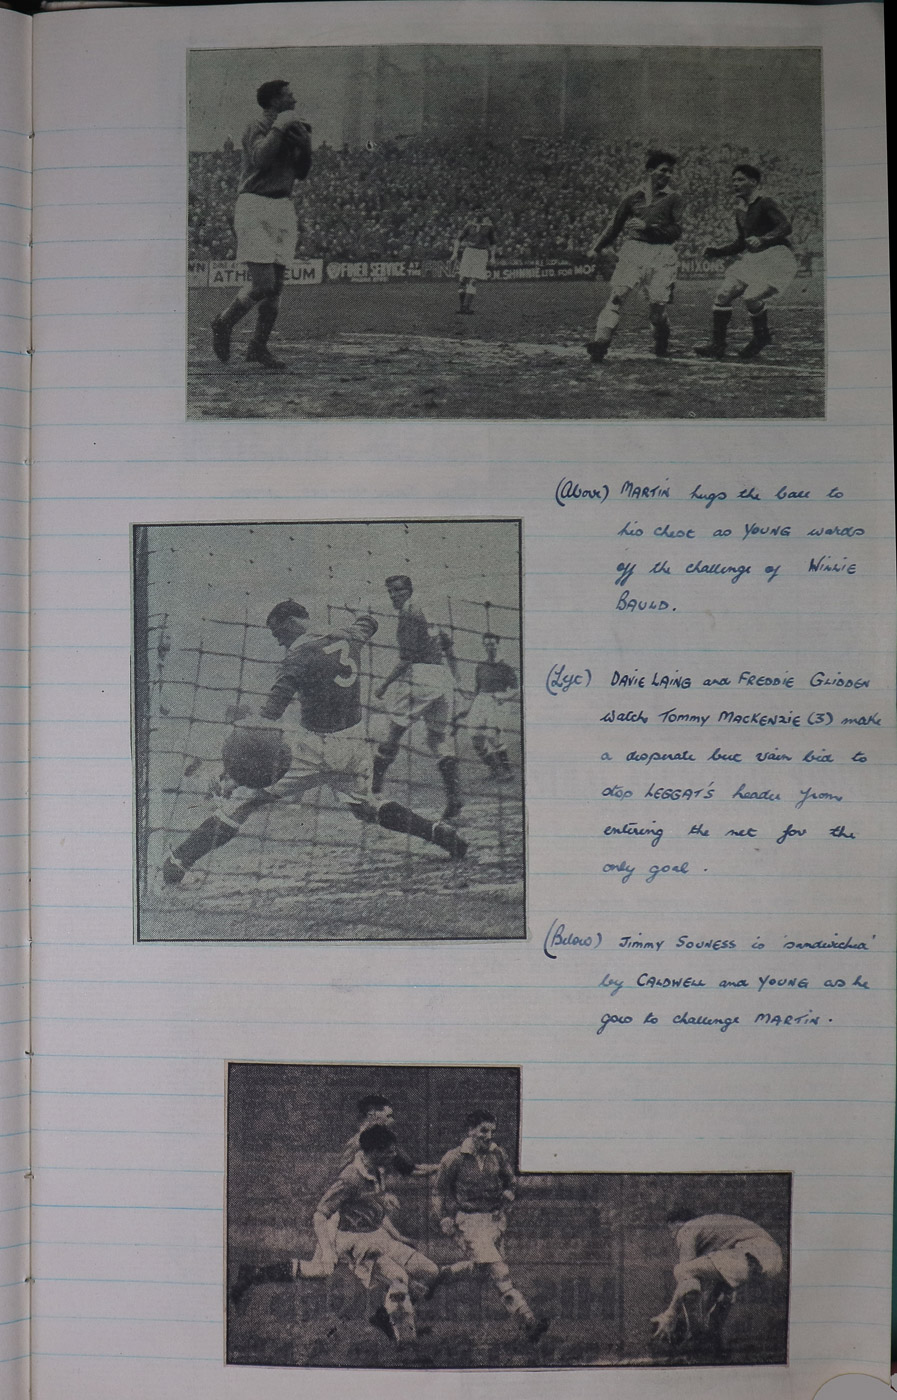 ATHENAEUM
FINER SERVICE AT
N. SHINNIE LTD. FOR MO
NIXONS
(Above) MARTIN hugs the ball to
his chest as YOUNG wards
off the challenge of WILLIE
BAULD.
3
(Left) DAVIE LAING and FREDDIE GLIDDEN
watch TOMMY MACKENZIE (3) make
a desperate but vain bid to
stop LEGGAT'S header from
entering the net for the
only goal.
(Below) JIMMY SOUNESS is 'sandwiched'
by CALDWELL and YOUNG as he
goes to challenge MARTIN.